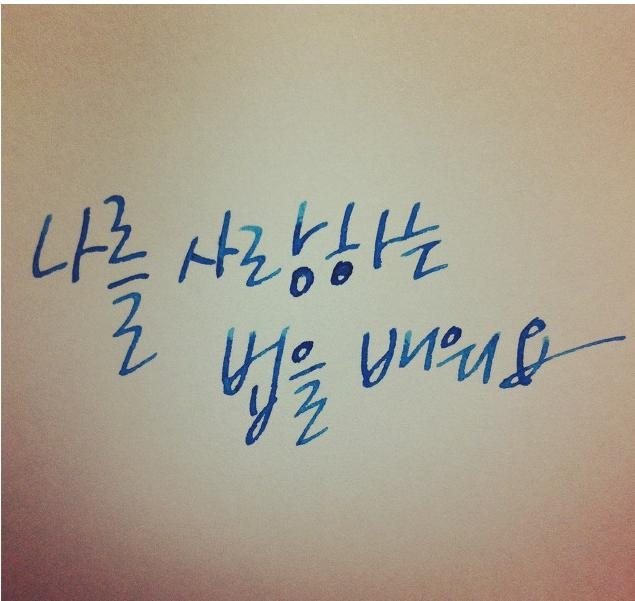 나를 사랑하는
법을 배워요